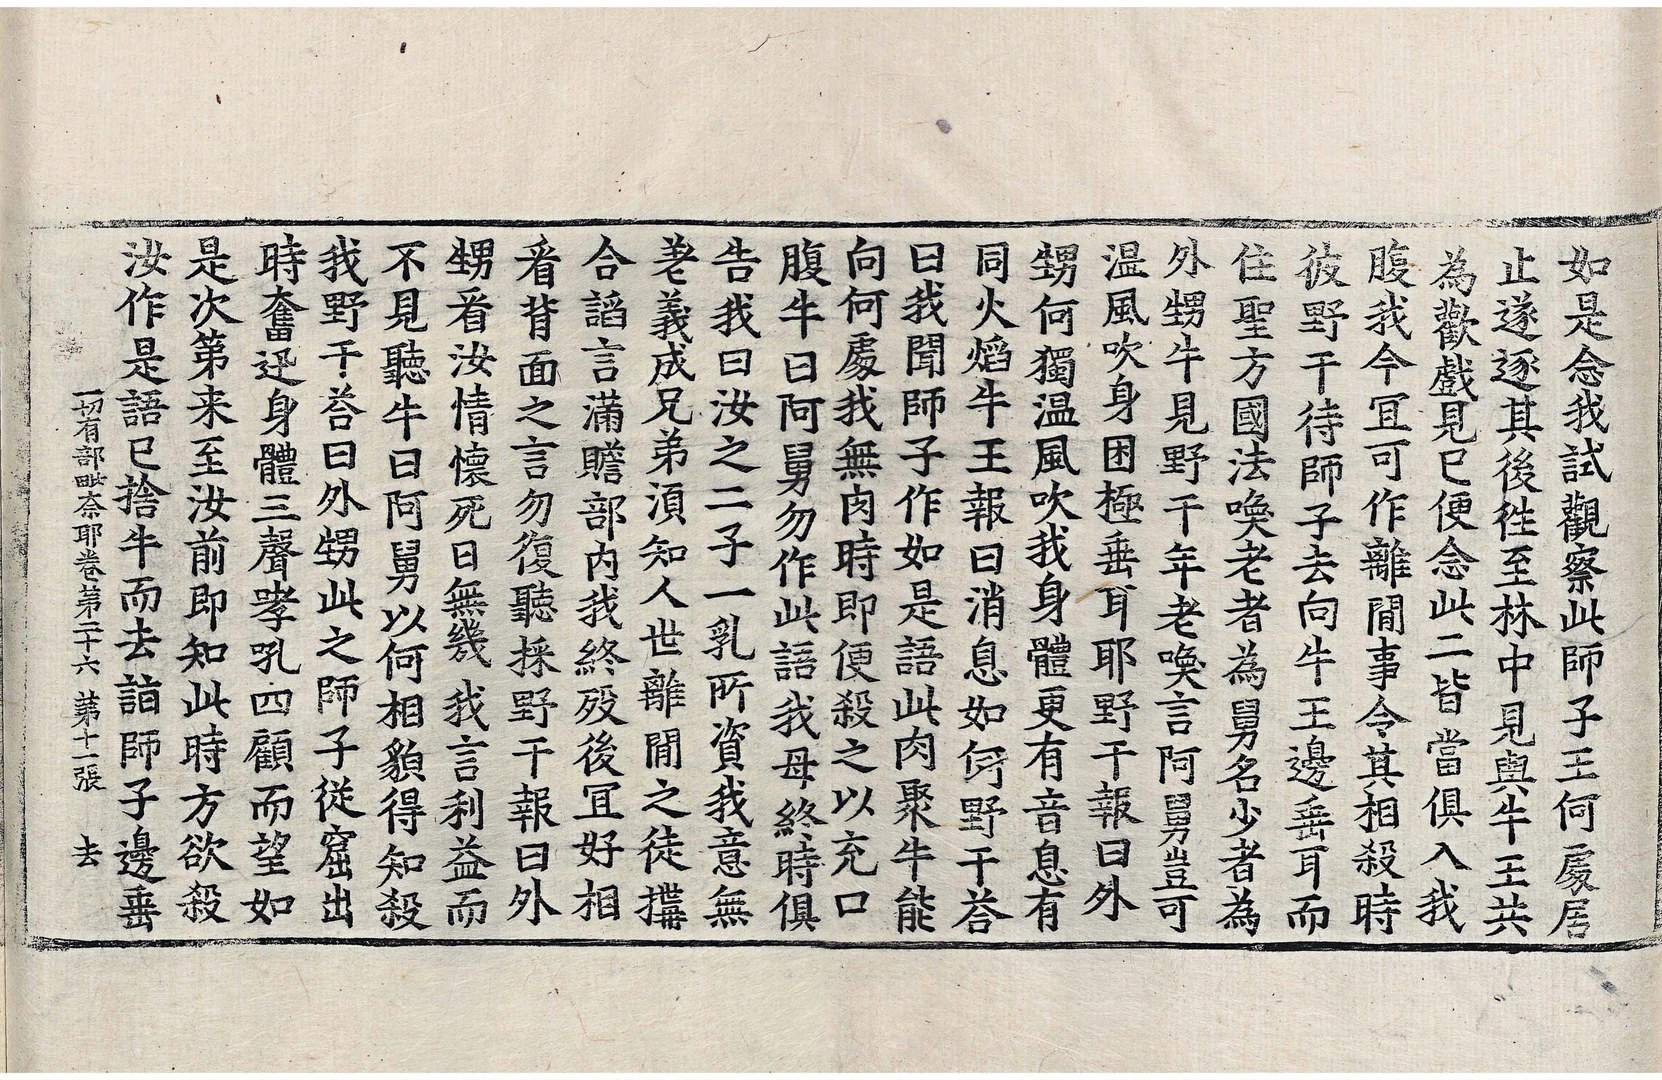 如是念我試觀察此師子王何處居
止遂逐其後徃至林中見與牛王共
為歡戲見已便念此二皆當俱入我
腹我今冝可作離間事令其相殺時
彼野干待師子去向牛王邊垂耳而
住聖方國法喚老者為舅名少者為
外甥牛見野干年老喚言阿舅豈可
温風吹身困極垂耳耶野干報曰外
甥何獨温風吹我身體更有音息有
同火焰牛王報曰消息如何野干荅
曰我聞師子作如是語此肉聚牛能
向何處我無肉時即便殺之以充口
腹牛曰阿舅勿作此語我母終時俱
告我曰汝之二子一乳所資我意無
差義成兄弟湏知人世離間之徒搆
合謟言滿贍部内我終殁後冝好相
看背面之言勿復聽採野干報曰外
甥看汝情懷死日無幾我言利益而
不見聽牛曰阿舅以何相貌得知殺
我野干荅曰外甥此之師子從窟出
時奮迅身體三聲哮吼四顧而望如
是次第来至汝前即知此時方欲殺
汝作是語已捨牛而去詣師子邊垂
一切有部毗奈耶卷第二十六 苐十一張 去